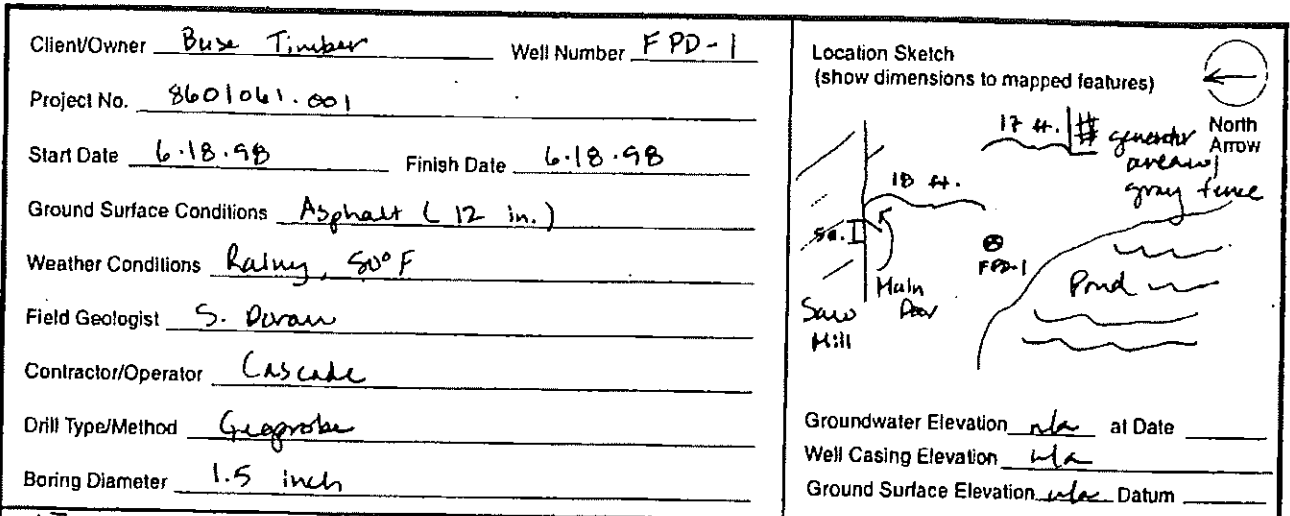 Client/Owner Buse Timber Well Number FPD-1
Project No. 8601061.001
Start Date 6.18.98 Finish Date 6.18.98
Ground Surface Conditions Asphalt (12 in.)
Weather Conditions Rainy, 50° F
Field Geologist S. Doran
Contractor/Operator Cascade
Drill Type/Method Geoprobe
Boring Diameter 1.5 inch
Location Sketch
(show dimensions to mapped features)
North
Arrow
17 ft. generator
area w/
gray fence
18 ft.
FPD-1
Pond
Main
Door
Saw
Mill
Groundwater Elevation n/a at Date
Well Casing Elevation n/a
Ground Surface Elevation n/a Datum